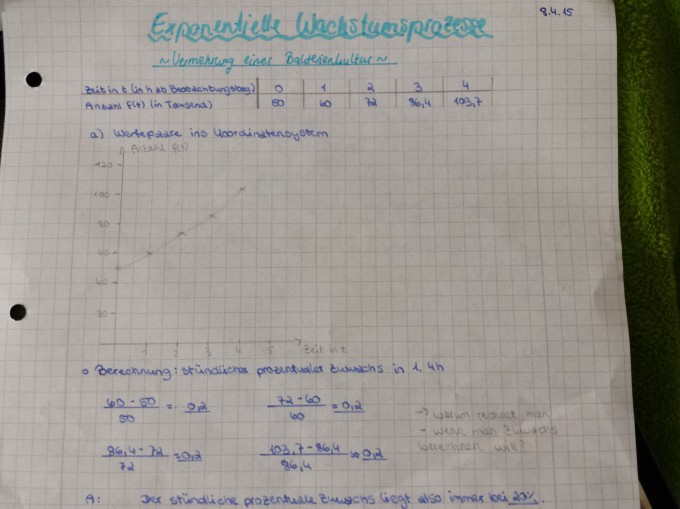 8.4.15
Exponentielle Wachstumsprozesse
~ Vermehrung einer Bakterienkultur ~
Zeit in t (in h ab Beobachtungsbeg.) 0 1 2 3 4
Anzahl f(t) (in Tausend) 50 60 72 86,4 103,7
a) Wertepaare ins Koordinatensystem
Anzahl f(t)
120
100
80
60
40
20
1 2 3 4 5 Zeit in t
o Berechnung: stündlicher prozentualer Zuwachs in 1. 4h
60 - 50 / 50 = 0,2 72 - 60 / 60 = 0,2
-> warum rechnet man
- wenn man Zuwachs
berechnen will?
86,4 - 72 / 72 = 0,2 103,7 - 86,4 / 86,4 ≈ 0,2
A: Der stündliche prozentuale Zuwachs liegt also immer bei 20%.